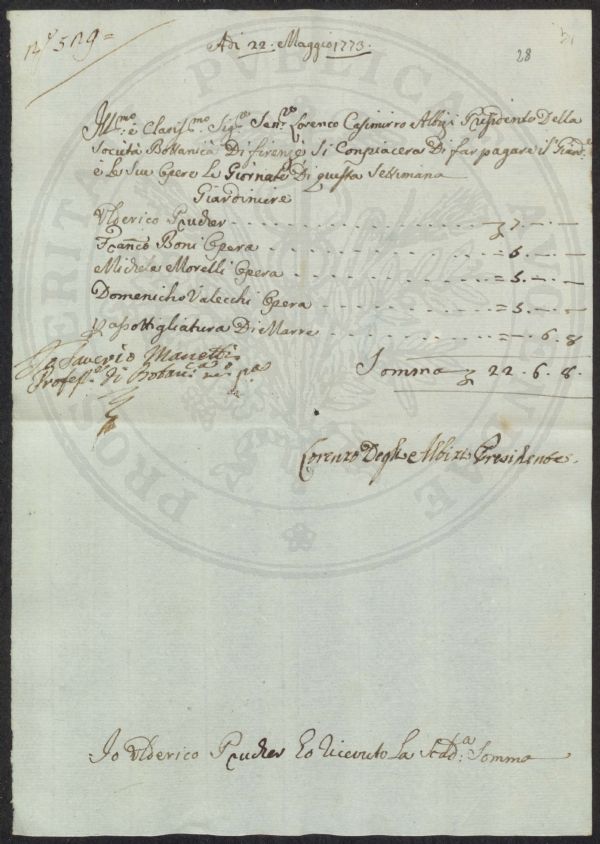 519 =
28
Adi 22. Maggio 1773.
Ill:mo e Claris:mo Sig:re Sen:re Lorenco Casimirro Albizi Presidente Della
Società Bottanica Di firenze Si Conpiacera Di far pagare il Giard:re
e le Sue Opere le Giornate Di questa Settimana
Giardiniere
Ulderico Prucher = 7. — —
Franco Boni Opera = 6. — —
Michele Morelli Opera = 5. — —
Domenicho Valecchi Opera = 5. — —
p asottigliatura Di Marre = — . 6. 8
Saverio Manetti
Profess:re di Botan:ca
Somma 22. 6. 8.
Lorenzo Degl'Albizi Presidente
Io Ulderico Prucher ho Ricevuto La Sud:a Somma
PROSPERITATI PUBLICAE